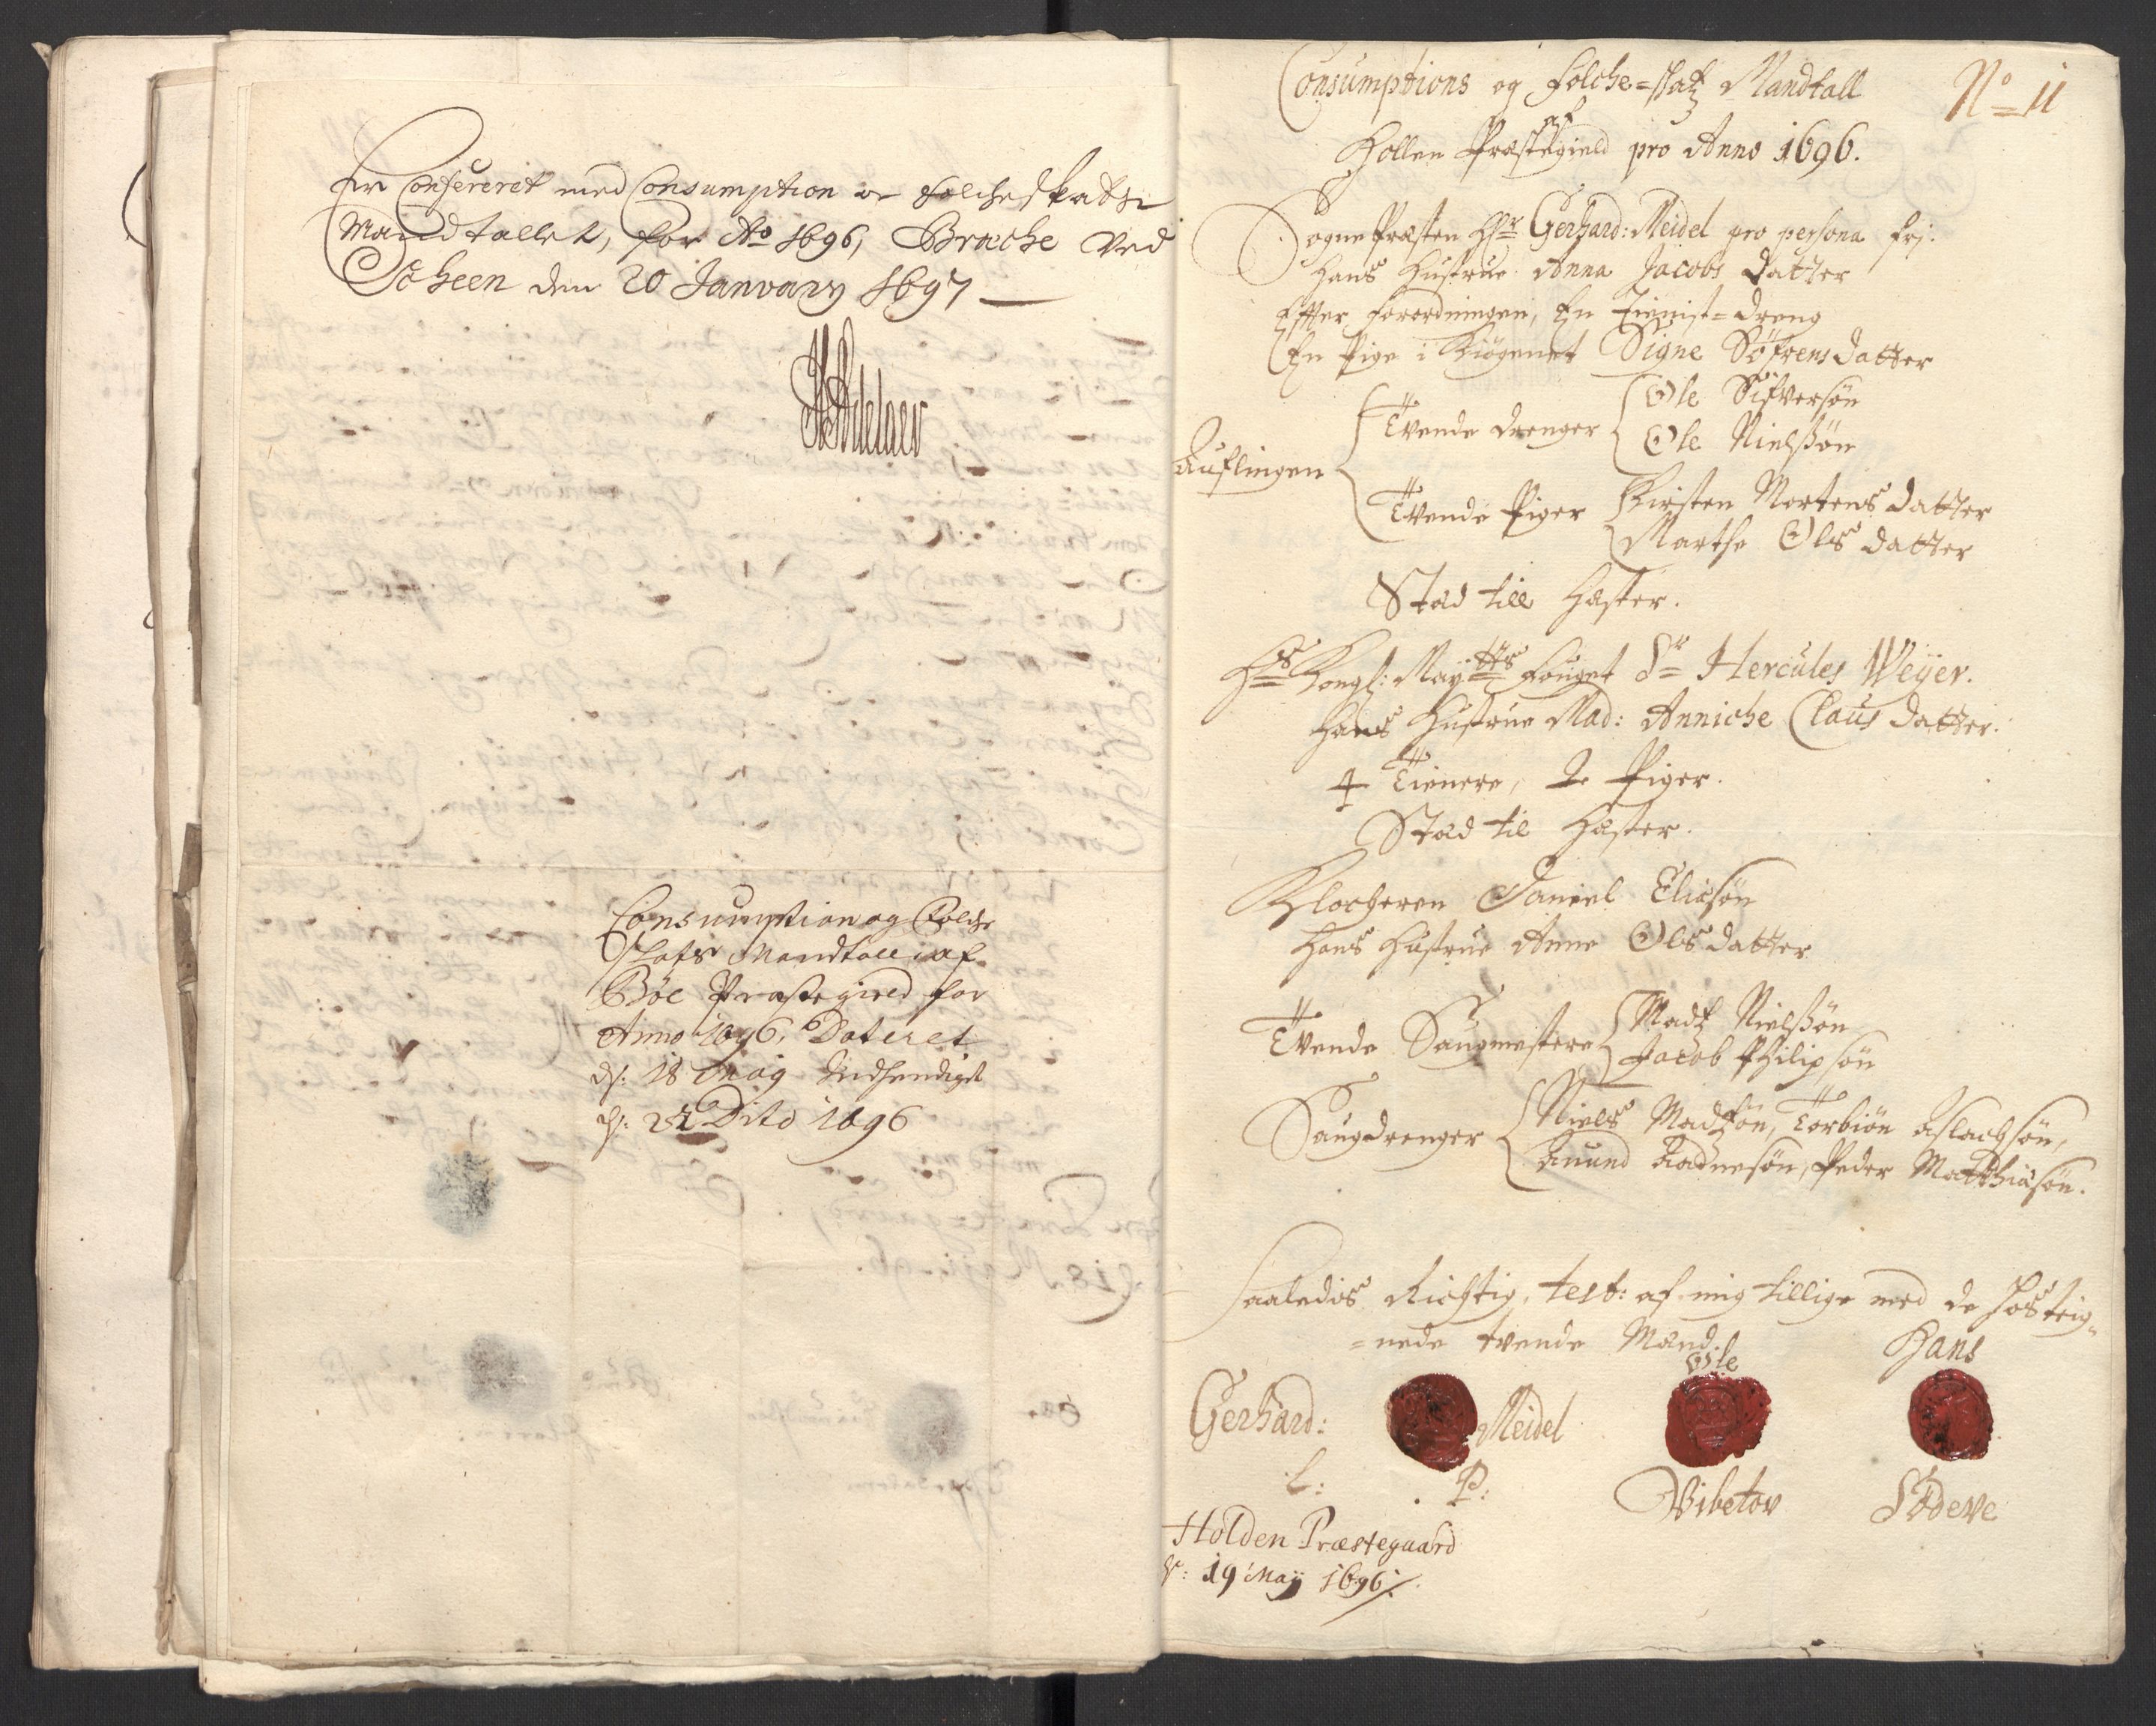 Er Confereret med Consumption oc Folcheskatte
Mandtallet, for Ao 1696, Brache ved
Scheen den 20 January 1697
Consumption og Folche
skats Mandtall af
Bøe Præstegield for
Anno 1696, Dateret
d: 18 Maÿ Indsendigt
d: 24 Dito 1696
No 11
Consumptions og Folche=skatz Mandtall
af
Hollen Præstegield pro Anno 1696.
SognePræsten Hr Gerhard: Meidel pro persona frj.
Hans Hustrue Anna Jacobs datter
Effter Forordningen, En Tienist=dreng
En Pige i Kiögenet Signe Söfrens datter
Auflingen
Tvende drenger
Ole Sifversön
Ole Nielsßön
Tvende Piger
Kirsten Mortens datter
Marthe Ols datter
Stad till Hæster.
Hs Kongl: Maytts Fouget Sr Hercules Weÿer.
Hans Hustrue Mad: Anniche Claus datter.
4 Tienere, 2 Piger.
Stad til Hæster.
Klocheren Daniel Eliasön
Hans Hustrue Anne Ols datter
Tvende Saugmestere
Madtz Nielsßön
Jacob Philipsön
Saugdrenger
Niels Madtzön, Torbiön Aslachsön,
Anund Aadnesön, Peder Matthiasön.
Saaledis Richtig, test: af mig tillige med de hosteig=
=nede tvende Mænd.
Gerhard: Meidel
L: P:
Ole
Vibetov
Hans
Södeve
Holden Præstegaard
d: 19 Maÿ 1696